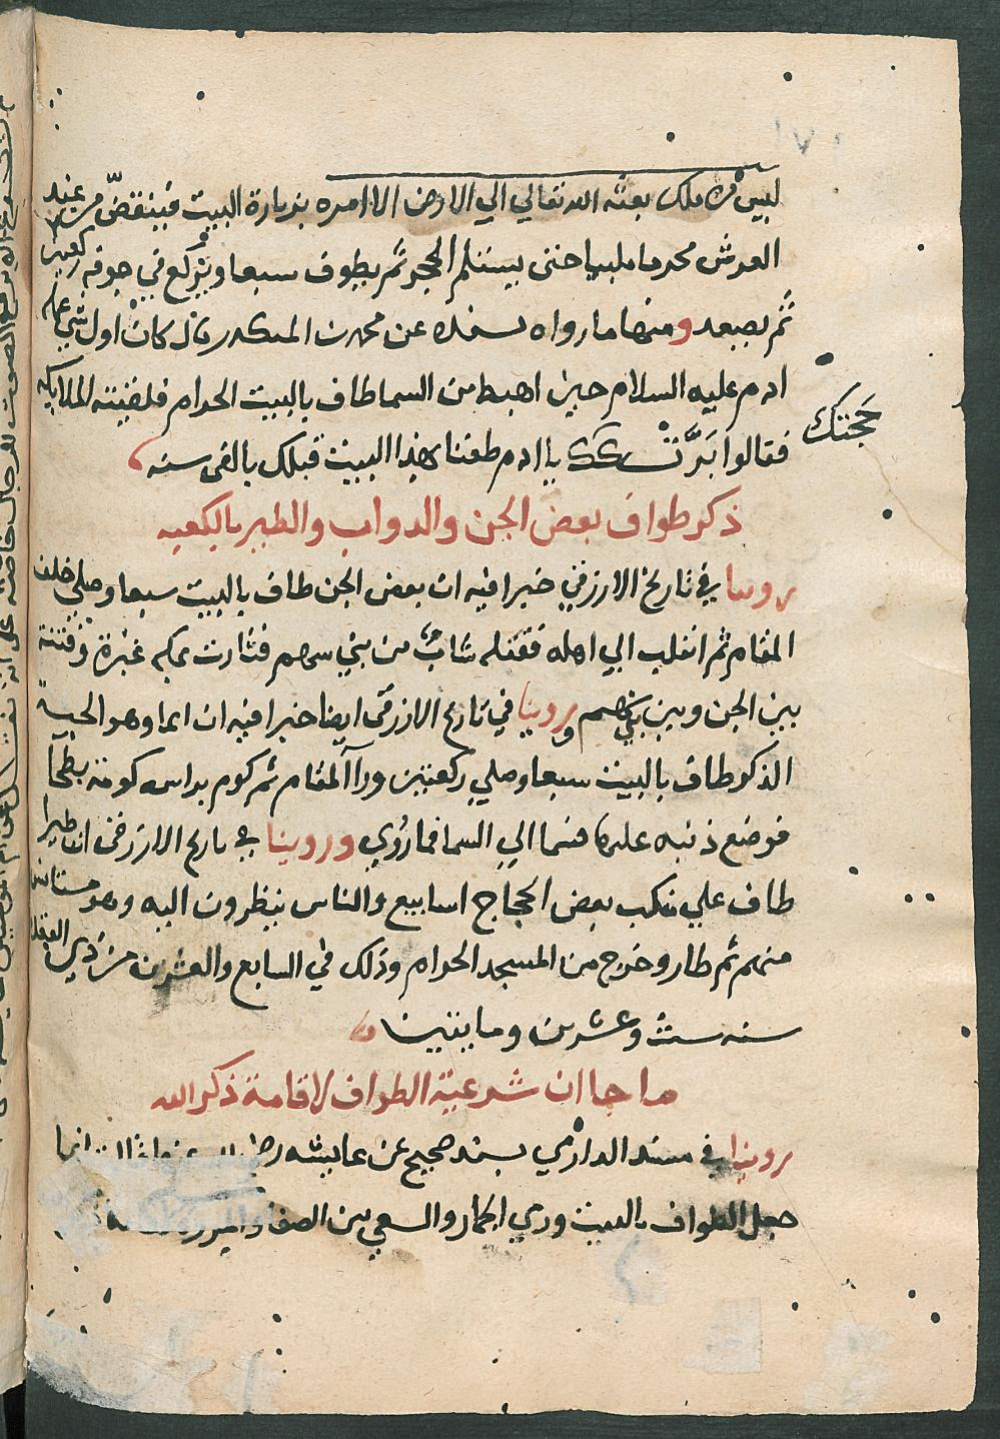 ليس من ملك بعثه الله تعالي الي الارض الا امره بزيارة البيت فينقض من عند
العرش محرما ملبيا حتى يستلم الحجر ثم يطوف سبعا ويركع في جوفه ركعتين
ثم يصعد ومنها ما رواه بسنده عن محمد بن المنكدر قال كان اول شي عمله
ادم عليه السلام حين اهبط من السما طاف بالبيت الحرام فلقيته الملايكه
فقالوا بَرَّت يا ادم طفنا بهذا البيت قبلك بالفى سنه
حَجتك
ذكر طواف بعض الجن والدواب والطير بالكعبه
روينا في تاريخ الازرقي خبرا فيه ان بعض الجن طاف بالبيت سبعا وصلي خلف
المقام ثم انقلب الي اهله فقتله شابٌ من بني سهم فثارت بمكه غبرة وفتنة
بين الجن وبين بني سهم وروينا في تاريخ الازرقى ايضا خبرا فيه ان ايما وهو الحية
الذكر طاف بالبيت سبعا وصلي ركعتين ورآ المقام ثم كوم براسه كومة بطحآ
فوضع ذنبه عليها فسما الي السما فما رُوي وروينا في تاريخ الازرقى ان طيرا
طاف علي منكب بعض الحجاج اسابيع والناس ينظرون اليه وهو مستانس
منهم ثم طار وخرج من المسجد الحرام وذلك في السابع والعشرين من ذي القعده
سنه ست وعشرين ومايتين
ما جا ان شرعية الطواف لاقامة ذكر الله
روينا في مسند الدارمي بسند صحيح عن عايشه رضي الله عنها قالت انما
جعل الطواف بالبيت ورمي الجمار والسعي بين الصفا والمروه